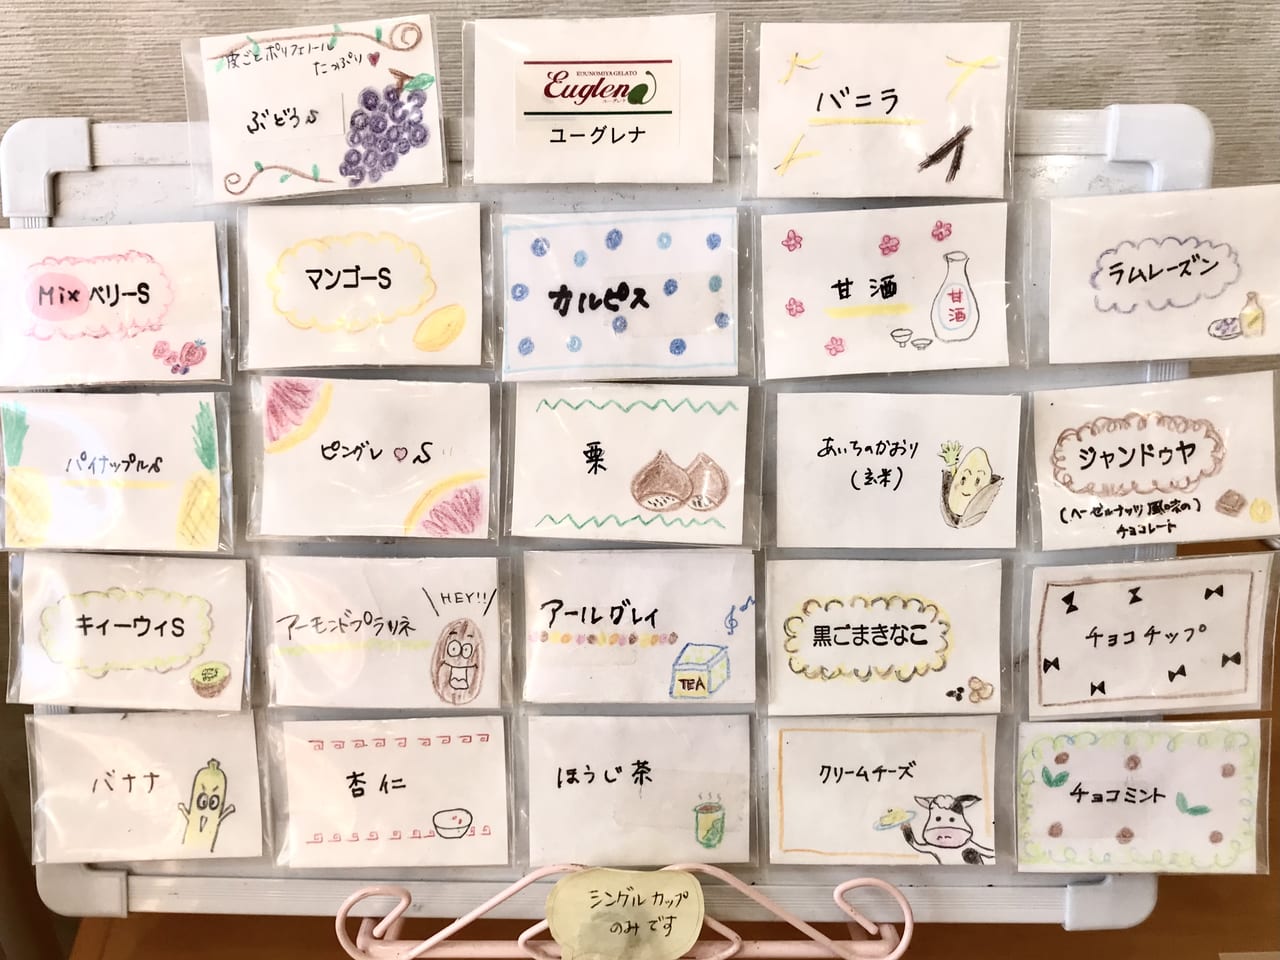 皮ごとポリフェノール
たっぷり♥
ぶどうS
KOUNOMIYA GELATO
Euglena
ユーグレナ
ユーグレナ
バニラ
Mixベリーs
マンゴーS
カルピス
甘酒
甘酒
ラムレーズン
パイナップルS
ピングレ♡S
栗
あいちのかおり
(玄米)
ジャンドゥヤ
(ヘーゼルナッツ風味の)
チョコレート
キィーウィS
アーモンドプラリネ
HEY!!
アールグレイ
TEA
黒ごまきなこ
チョコチップ
バナナ
杏仁
ほうじ茶
クリームチーズ
チョコミント
シングルカップ
のみです